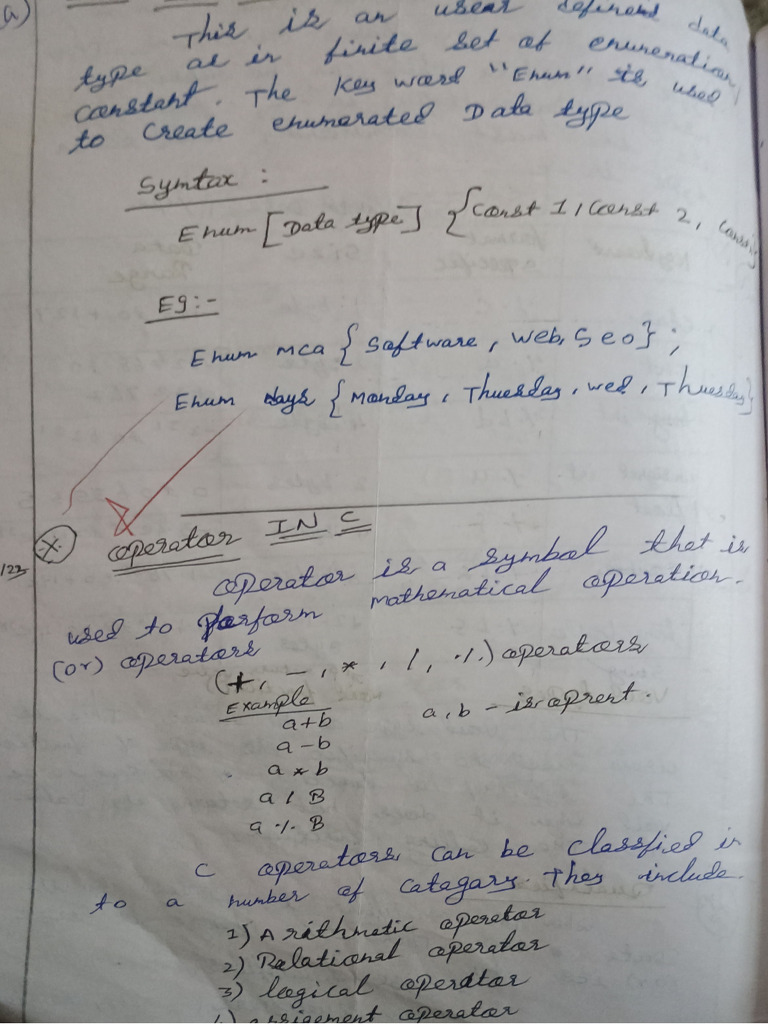 a)
This is an user defined data
type as in finite set of enumeration
constant. The key word "Enum" is used
to create enumerated Data type
Symtax :
Enum [Data type] {Const 1, Const 2,
Eg:-
Enum mca { Software, Web, Seo};
Enum days { Monday, Thuesday, wed, Thuesday}
operator IN C
122
operator is a symbol that is
used to perform mathematical operation.
(or) operators
(+, -, *, /, %) operators
Example
a, b - is oprent.
a+b
a-b
a * b
a / B
a % B
C operators can be classfied in
to a number of catagary. They include.
1) Arithmatic operator
2) Relational operator
3) logical operator
4) assigement operator